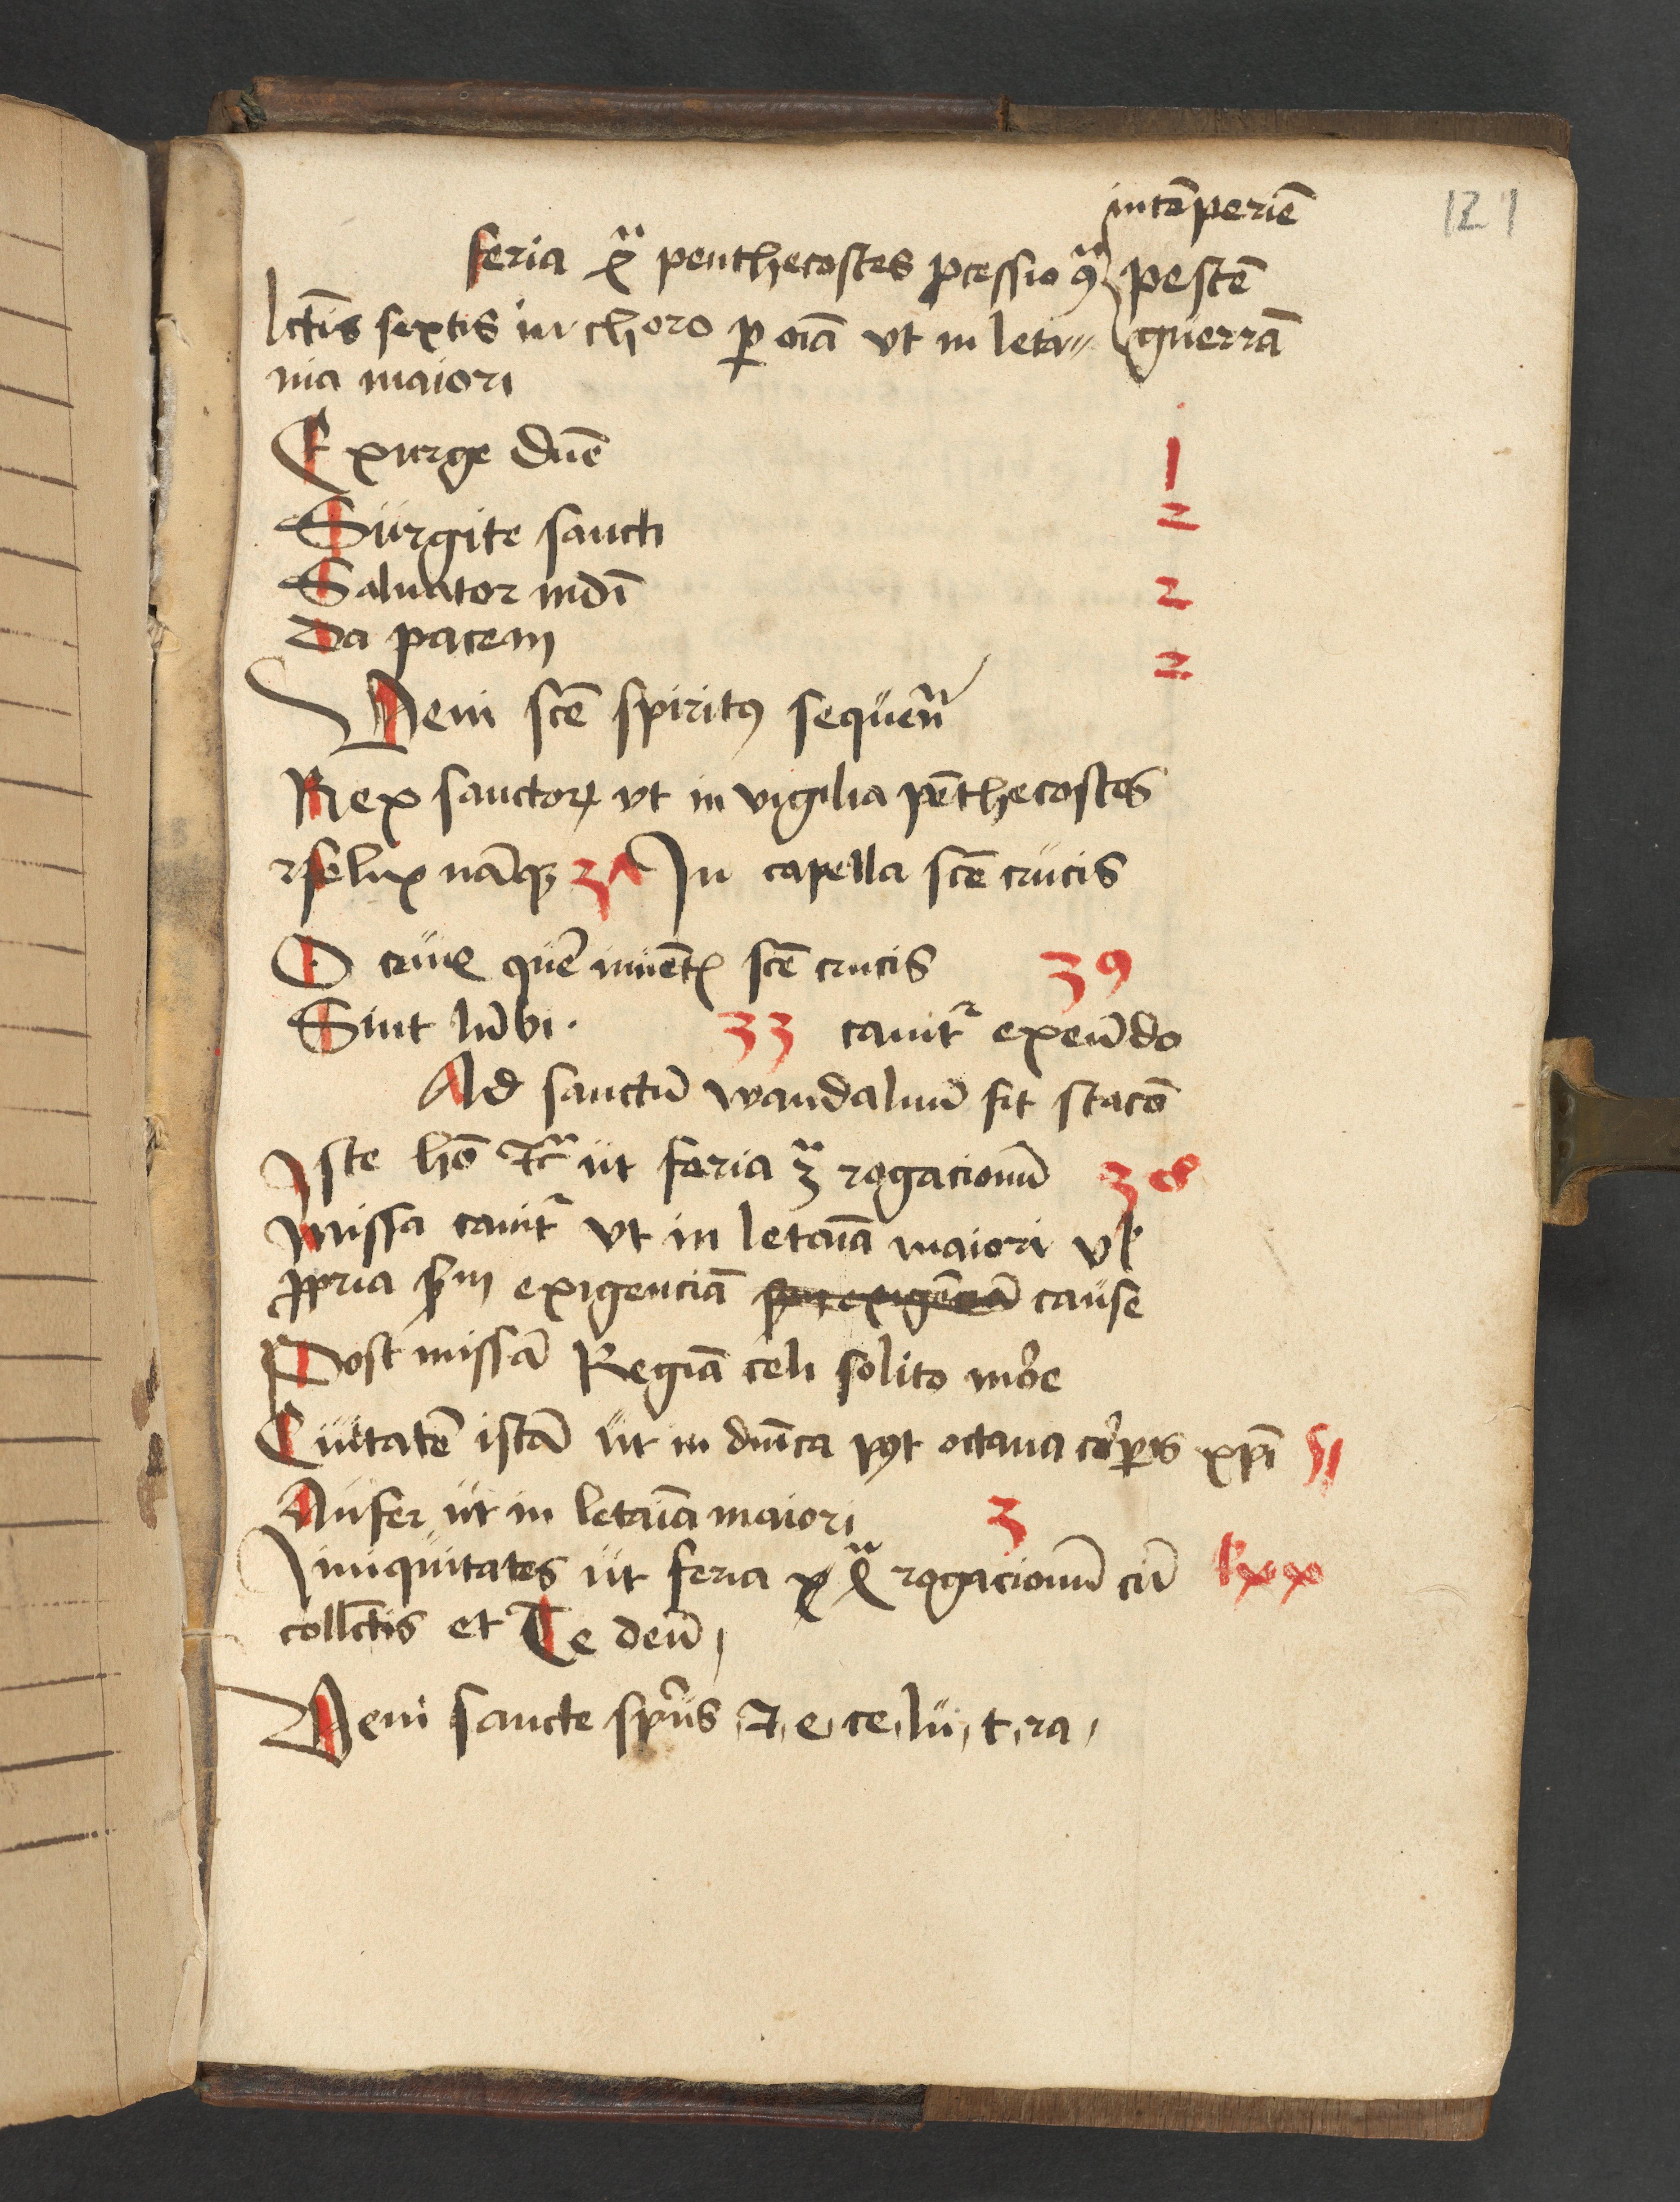 121
intēperiē
feria 4ᵃ penthecostes ꝓcessio ꝯᵃ pestē
lctīs sextis in choro ꝑ oīa vt in leta〃 guerrā
nia maiori
Exurge dn̄e 1
Surgite sancti 2
Saluator mdī 2
Da pacem 2
Veni scē spiritꝰ sequen̄
Rex sanctoꝝ vt in vigilia pēthecostes
In capella scē crucis
O crux scē crucis 39
Sint lūbi 33 canitʳ exeūdo
Ad sanctū wandalinū fit stacō
Iste hō ut feria 3ᵃ rogacionū 38
Missa canitʳ vt in letaīa maiori vl
ꝓpria exigenciā cause
Post missā Reginā celi solito more
Ciuitatē istā ut in dn̄ica pꝰt octaua corꝑis xp̄i 51
Aufer ut in letaīa maiori 3
Iniquitates ut feria 4ᵃ rogacionū cū lxx
collc̄tis et Te deū
Veni sancte spūs , ⁊ , e , ce , lu , t , ra ,